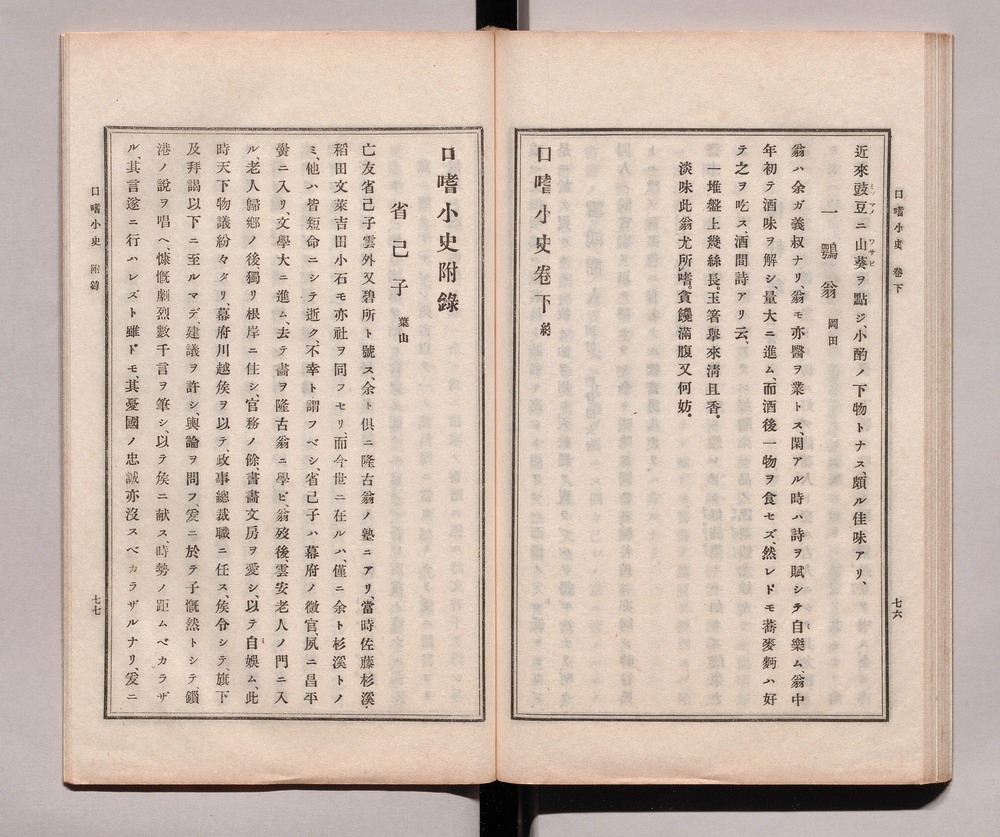 口嗜小史 卷下
七六
近來豉豆ニ山葵ヲ點ジ、小酌ノ下物トナス、頗ル佳味アリ、
ミソマメ ワサビ
一鸚翁 岡田
翁ハ余ガ義叔ナリ、翁モ亦醫ヲ業トス、閑アル時ハ詩ヲ賦シテ自樂ム、翁中
年初テ酒味ヲ解シ、量大ニ進ム、而酒後一物ヲ食セズ、然レドモ蕎麥麪ハ好
テ之ヲ吃ス、酒間詩アリ云、
一堆盤上幾絲長。玉箸擧來淸且香。
淡味此翁尤所嗜。貪饞滿腹又何妨。
口嗜小史卷下終
口嗜小史附錄
省己子 葉山
亡友省己子雲外又碧所ト號ス、余ト倶ニ隆古翁ノ塾ニアリ、當時佐藤杉溪、
稻田文萊吉田小石モ亦社ヲ同フセリ、而今世ニ在ルハ僅ニ余ト杉溪トノ
ミ、他ハ皆短命ニシテ逝ク、不幸ト謂フベシ、省己子ハ幕府ノ微官、夙ニ昌平
黌ニ入リ、文學大ニ進ム、去テ畫ヲ隆古翁ニ學ビ、翁歿後、雲安老人ノ門ニ入
ル、老人歸鄕ノ後獨リ根岸ニ住シ、官務ノ餘書畵文房ヲ愛シ、以テ自娯ム、此
時天下物議紛々タリ、幕府川越矦ヲ以テ、政事總裁職ニ任ス、矦令シテ、旗下
及拜謁以下ニ至ルマデ、建議ヲ許シ、輿論ヲ問フ、爰ニ於テ子慨然トシテ、鎖
港ノ說ヲ唱ヘ、慷慨劇烈數千言ヲ筆シ、以テ矦ニ献ス、時勢ノ距ムベカラザ
ル、其言遂ニ行ハレズト雖ドモ、其憂國ノ忠誠亦沒スベカラザルナリ、爰ニ
口嗜小史 附錄
七七